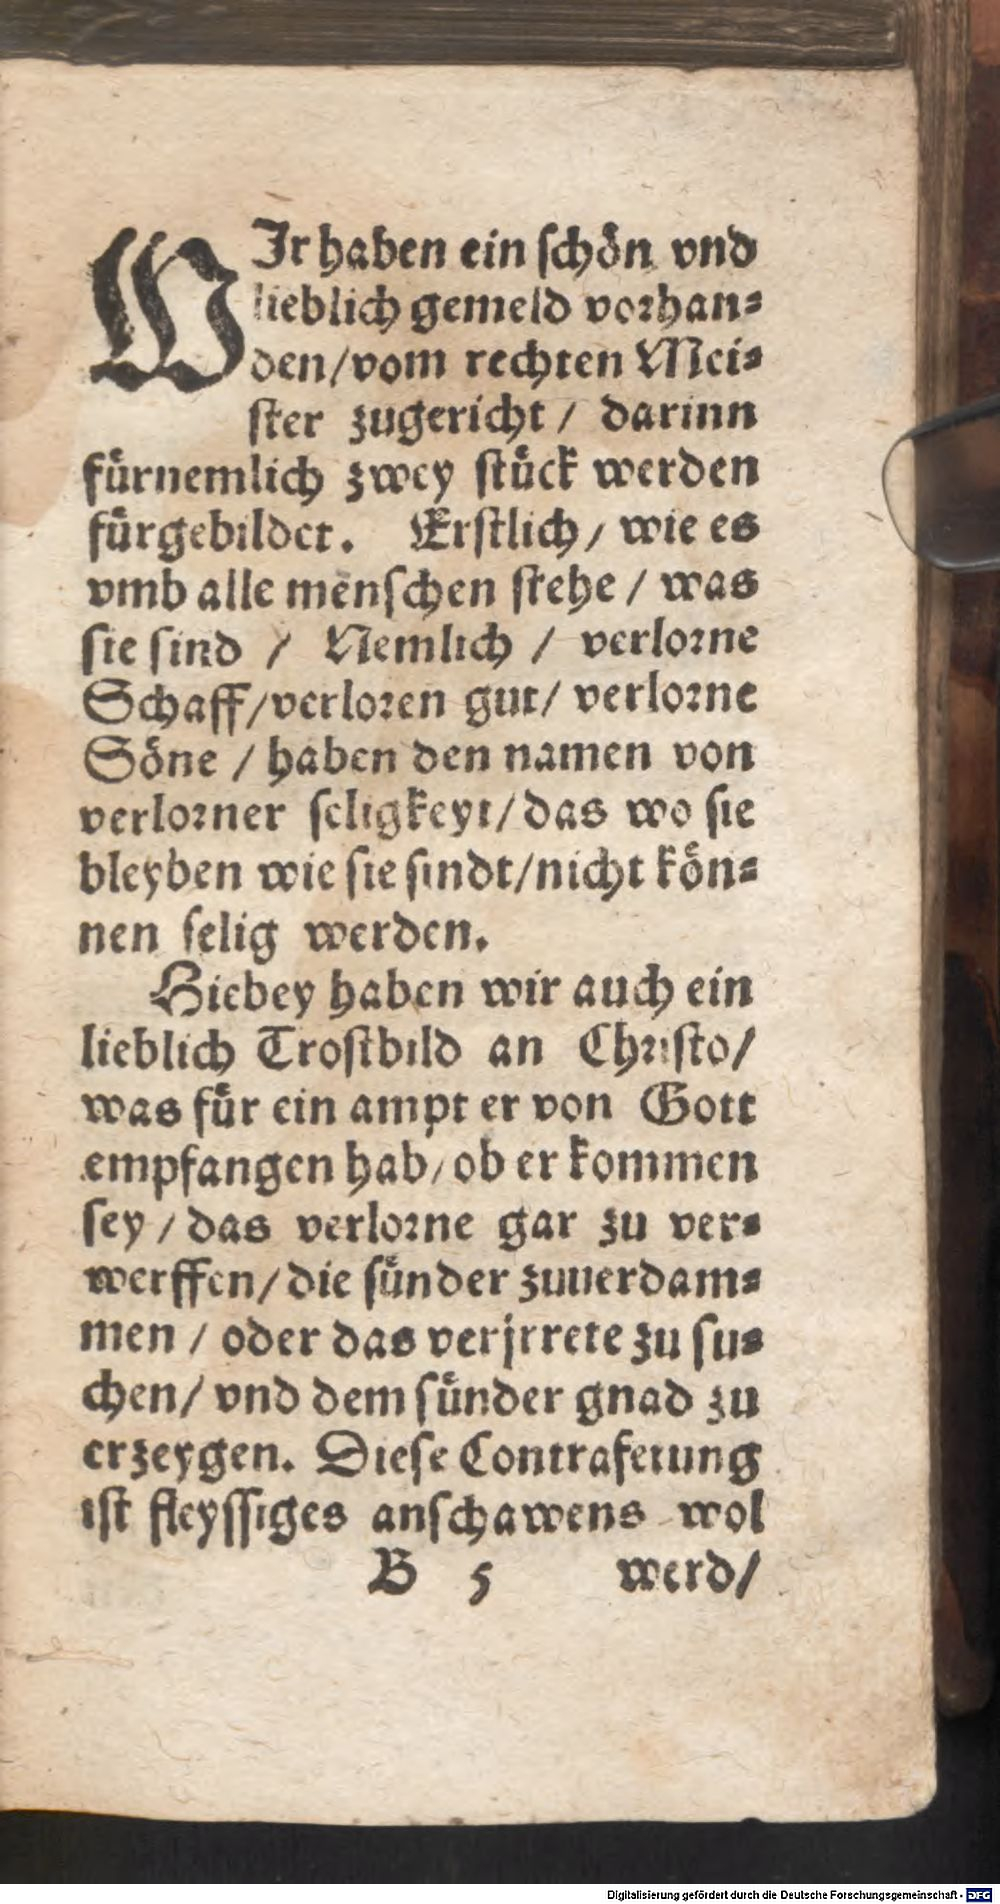 WIr haben ein schön vnd
lieblich gemeld vorhan-
den/vom rechten Mei-
ster zugericht / darinn
fürnemlich zwey stück werden
fürgebildet. Erstlich / wie es
vmb alle menschen stehe / was
sie sind / Nemlich / verlorne
Schaff/verloren gut/ verlorne
Söne / haben den namen von
verlorner seligkeyt/das wo sie
bleyben wie sie sindt/nicht kön-
nen selig werden.
Hiebey haben wir auch ein
lieblich Trostbild an Christo/
was für ein ampt er von Gott
empfangen hab/ob er kommen
sey / das verlorne gar zu ver-
werffen/die sünder zuuerdam-
men / oder das verjrrete zu su-
chen/ vnd dem sünder gnad zu
erzeygen. Diese Contrafetung
ist fleyssiges anschawens wol
B 5 werd/
Digitalisierung gefördert durch die Deutsche Forschungsgemeinschaft - DFG